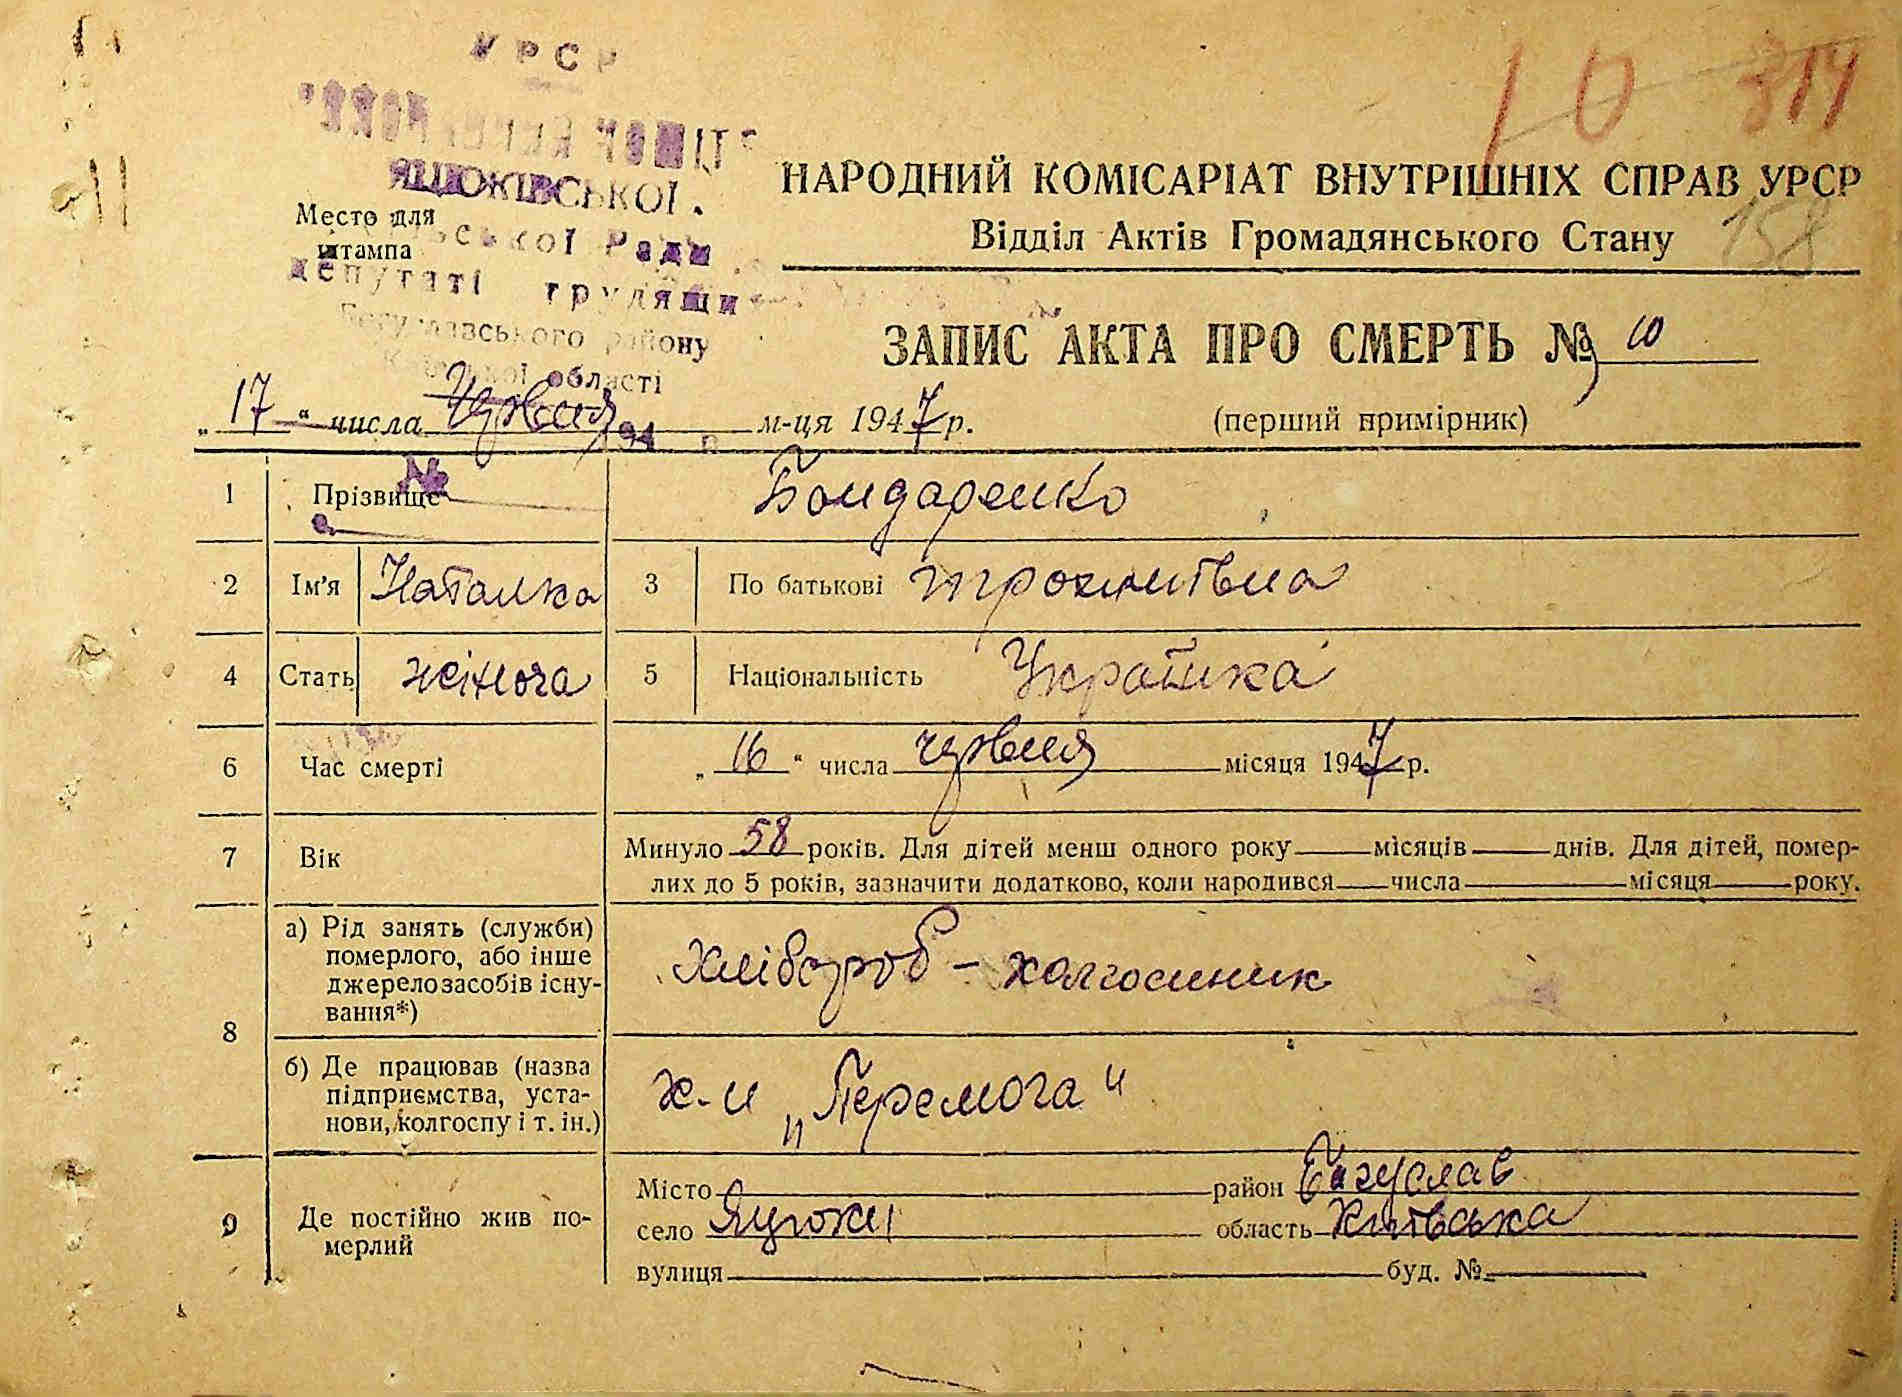 УРСР
10 314
ЯЦЮКІВСЬКОЇ
НАРОДНИЙ КОМІСАРІАТ ВНУТРІШНІХ СПРАВ УРСР
Место для
штампа
Ради
Відділ Актів Громадянського Стану
158
депутаті трудящи
району
області
ЗАПИС АКТА ПРО СМЕРТЬ № 10
„17“ числа червня м-ця 1947 р.
(перший примірник)
194 р.
№
1 Прізвище Бондаренко
2 Ім'я Наталка 3 По батькові
4 Стать жіноча 5 Національність Українка
6 Час смерті „16“ числа червня місяця 1947 р.
7 Вік Минуло 58 років. Для дітей менш одного року місяців днів. Для дітей, помер-
лих до 5 років, зазначити додатково, коли народився числа місяця року.
8 а) Рід занять (служби)
померлого, або інше
джерело засобів існу-
вання*)
хлібороб - колгоспник
б) Де працював (назва
підприємства, уста-
нови, колгоспу і т. ін.)
к-п „Перемога"
9 Де постійно жив по-
мерлий
Місто район Богуслав
село Яцюки область Київська
вулиця буд. №